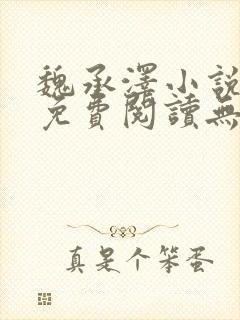 魏承澤小說
免費閱讀無
真是个笨蛋